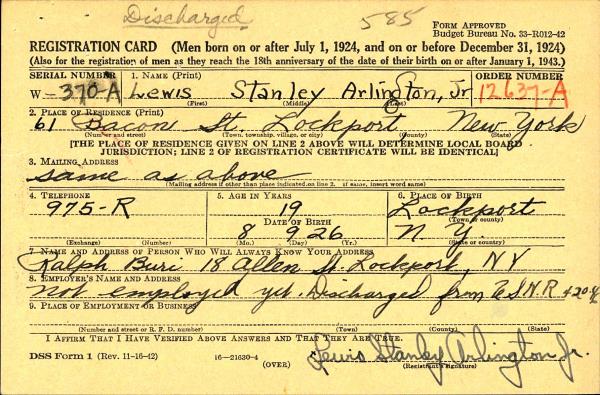 Discharged 585
FORM APPROVED
Budget Bureau No. 33-R012-42
REGISTRATION CARD (Men born on or after July 1, 1924, and on or before December 31, 1924)
(Also for the registration of men as they reach the 18th anniversary of the date of their birth on or after January 1, 1943.)
SERIAL NUMBER 1. NAME (Print) ORDER NUMBER
W- 370-A Lewis Stanley Arlington, Jr 12637-A
(First) (Middle) (Last)
2. PLACE OF RESIDENCE (Print)
61 Bacon St. Lockport New York
(Number and street) (Town, township, village, or city) (County) (State)
[THE PLACE OF RESIDENCE GIVEN ON LINE 2 ABOVE WILL DETERMINE LOCAL BOARD
JURISDICTION; LINE 2 OF REGISTRATION CERTIFICATE WILL BE IDENTICAL]
3. MAILING ADDRESS
same as above
(Mailing address if other than place indicated on line 2. If same, insert word same)
4. TELEPHONE 5. AGE IN YEARS 6. PLACE OF BIRTH
975-R 19 Lockport
DATE OF BIRTH (Town or county)
8 9 26 N.Y.
(Exchange) (Number) (Mo.) (Day) (Yr.) (State or country)
7. NAME AND ADDRESS OF PERSON WHO WILL ALWAYS KNOW YOUR ADDRESS
Ralph Buri 18 Allen St. Lockport, NY
8. EMPLOYER'S NAME AND ADDRESS
not employed yet. Discharged from USNR
9. PLACE OF EMPLOYMENT OR BUSINESS
(Number and street or R. F. D. number) (Town) (County) (State)
I AFFIRM THAT I HAVE VERIFIED ABOVE ANSWERS AND THAT THEY ARE TRUE.
DSS Form 1 (Rev. 11-16-42) 16-21630-4 Lewis Stanley Arlington Jr.
(OVER) (Registrant's signature)